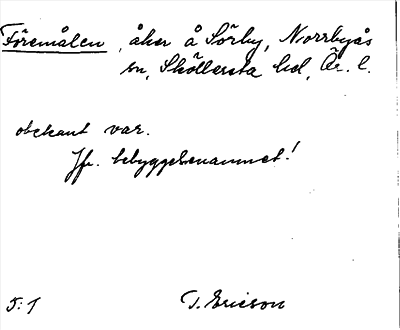 Föremålen, åker å Sörby, Norrbyås
sn, Sköllersta hd, Ör. l.
obekant var.
Jfr. bebyggelsenamnet!
5:1 T. Ericson